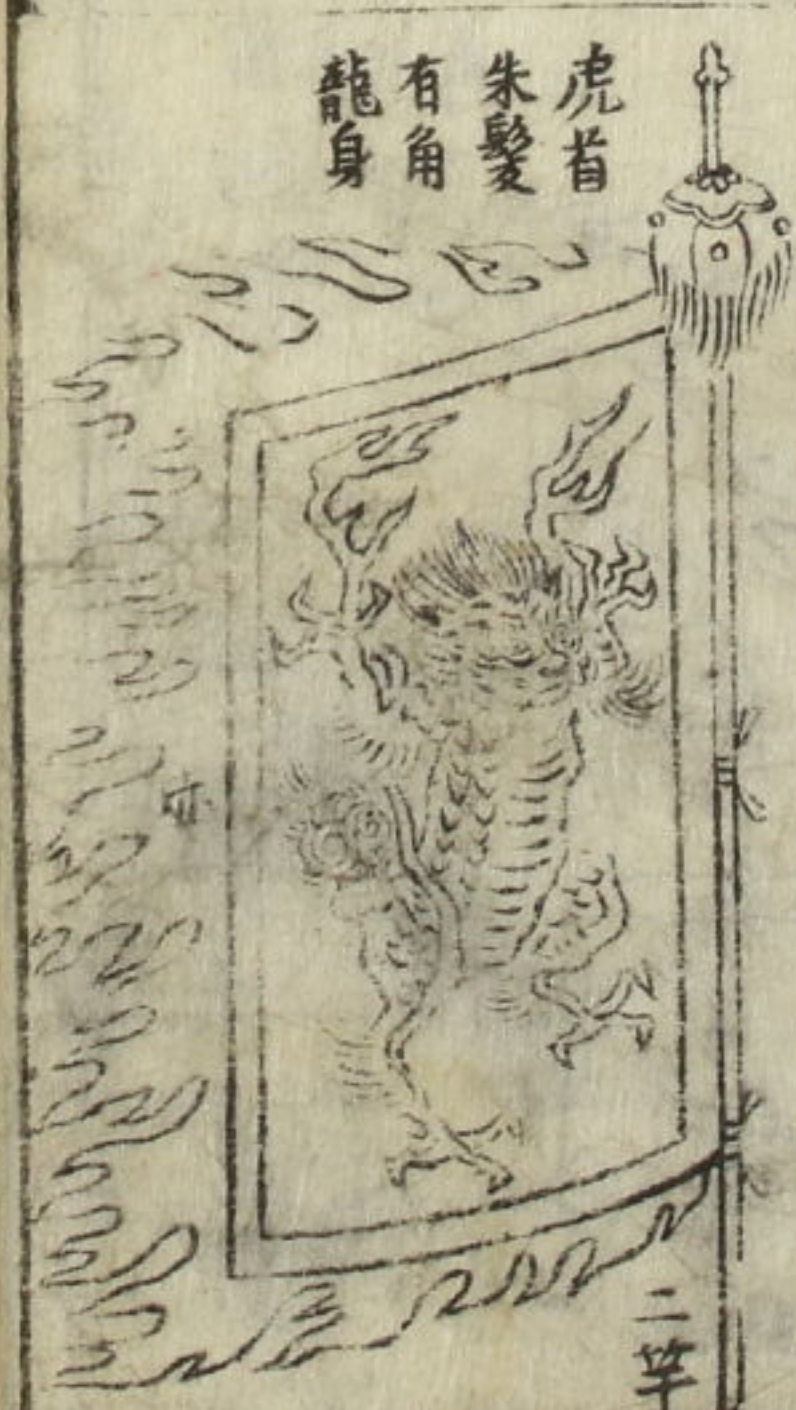 虎首
朱髮
有角
龍身
二竿